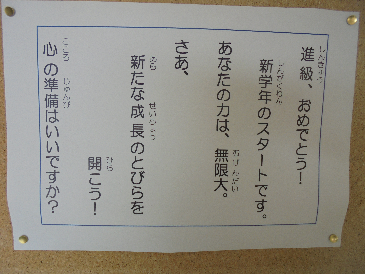 進級、おめでとう！
新学年のスタートです。
あなたの力は、無限大。
さあ、
新たな成長のとびらを
開こう！
心の準備はいいですか？